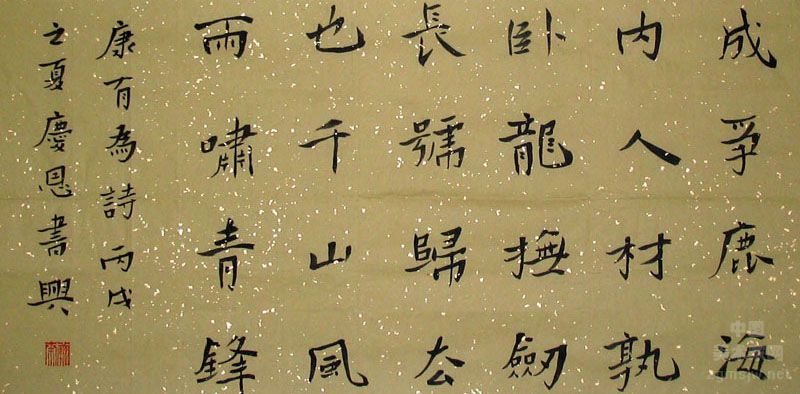 成爭鹿海
内人材孰
卧龍撫劒
長號歸去
也千山風
雨嘯青鋒
康有為詩丙戌
之夏慶恩書興
中国